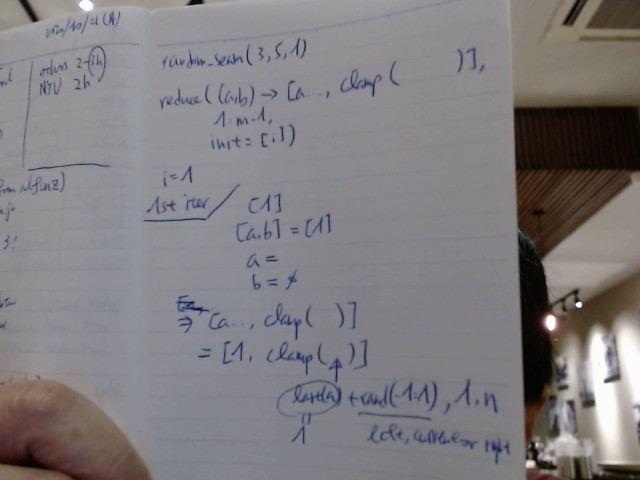 others 2-3h
NYU 2h
random_seam(3,5,1)
reduce((a,b) → [a..., clamp(        )],
1:m-1;
init=[i])
i=1
1st iter
[1]
[a,b] = [1]
a =
b =
⇒ [a..., clamp(  )]
= [1, clamp( )]
last(a) + rand(-1:1), 1, n
1
left, current or right